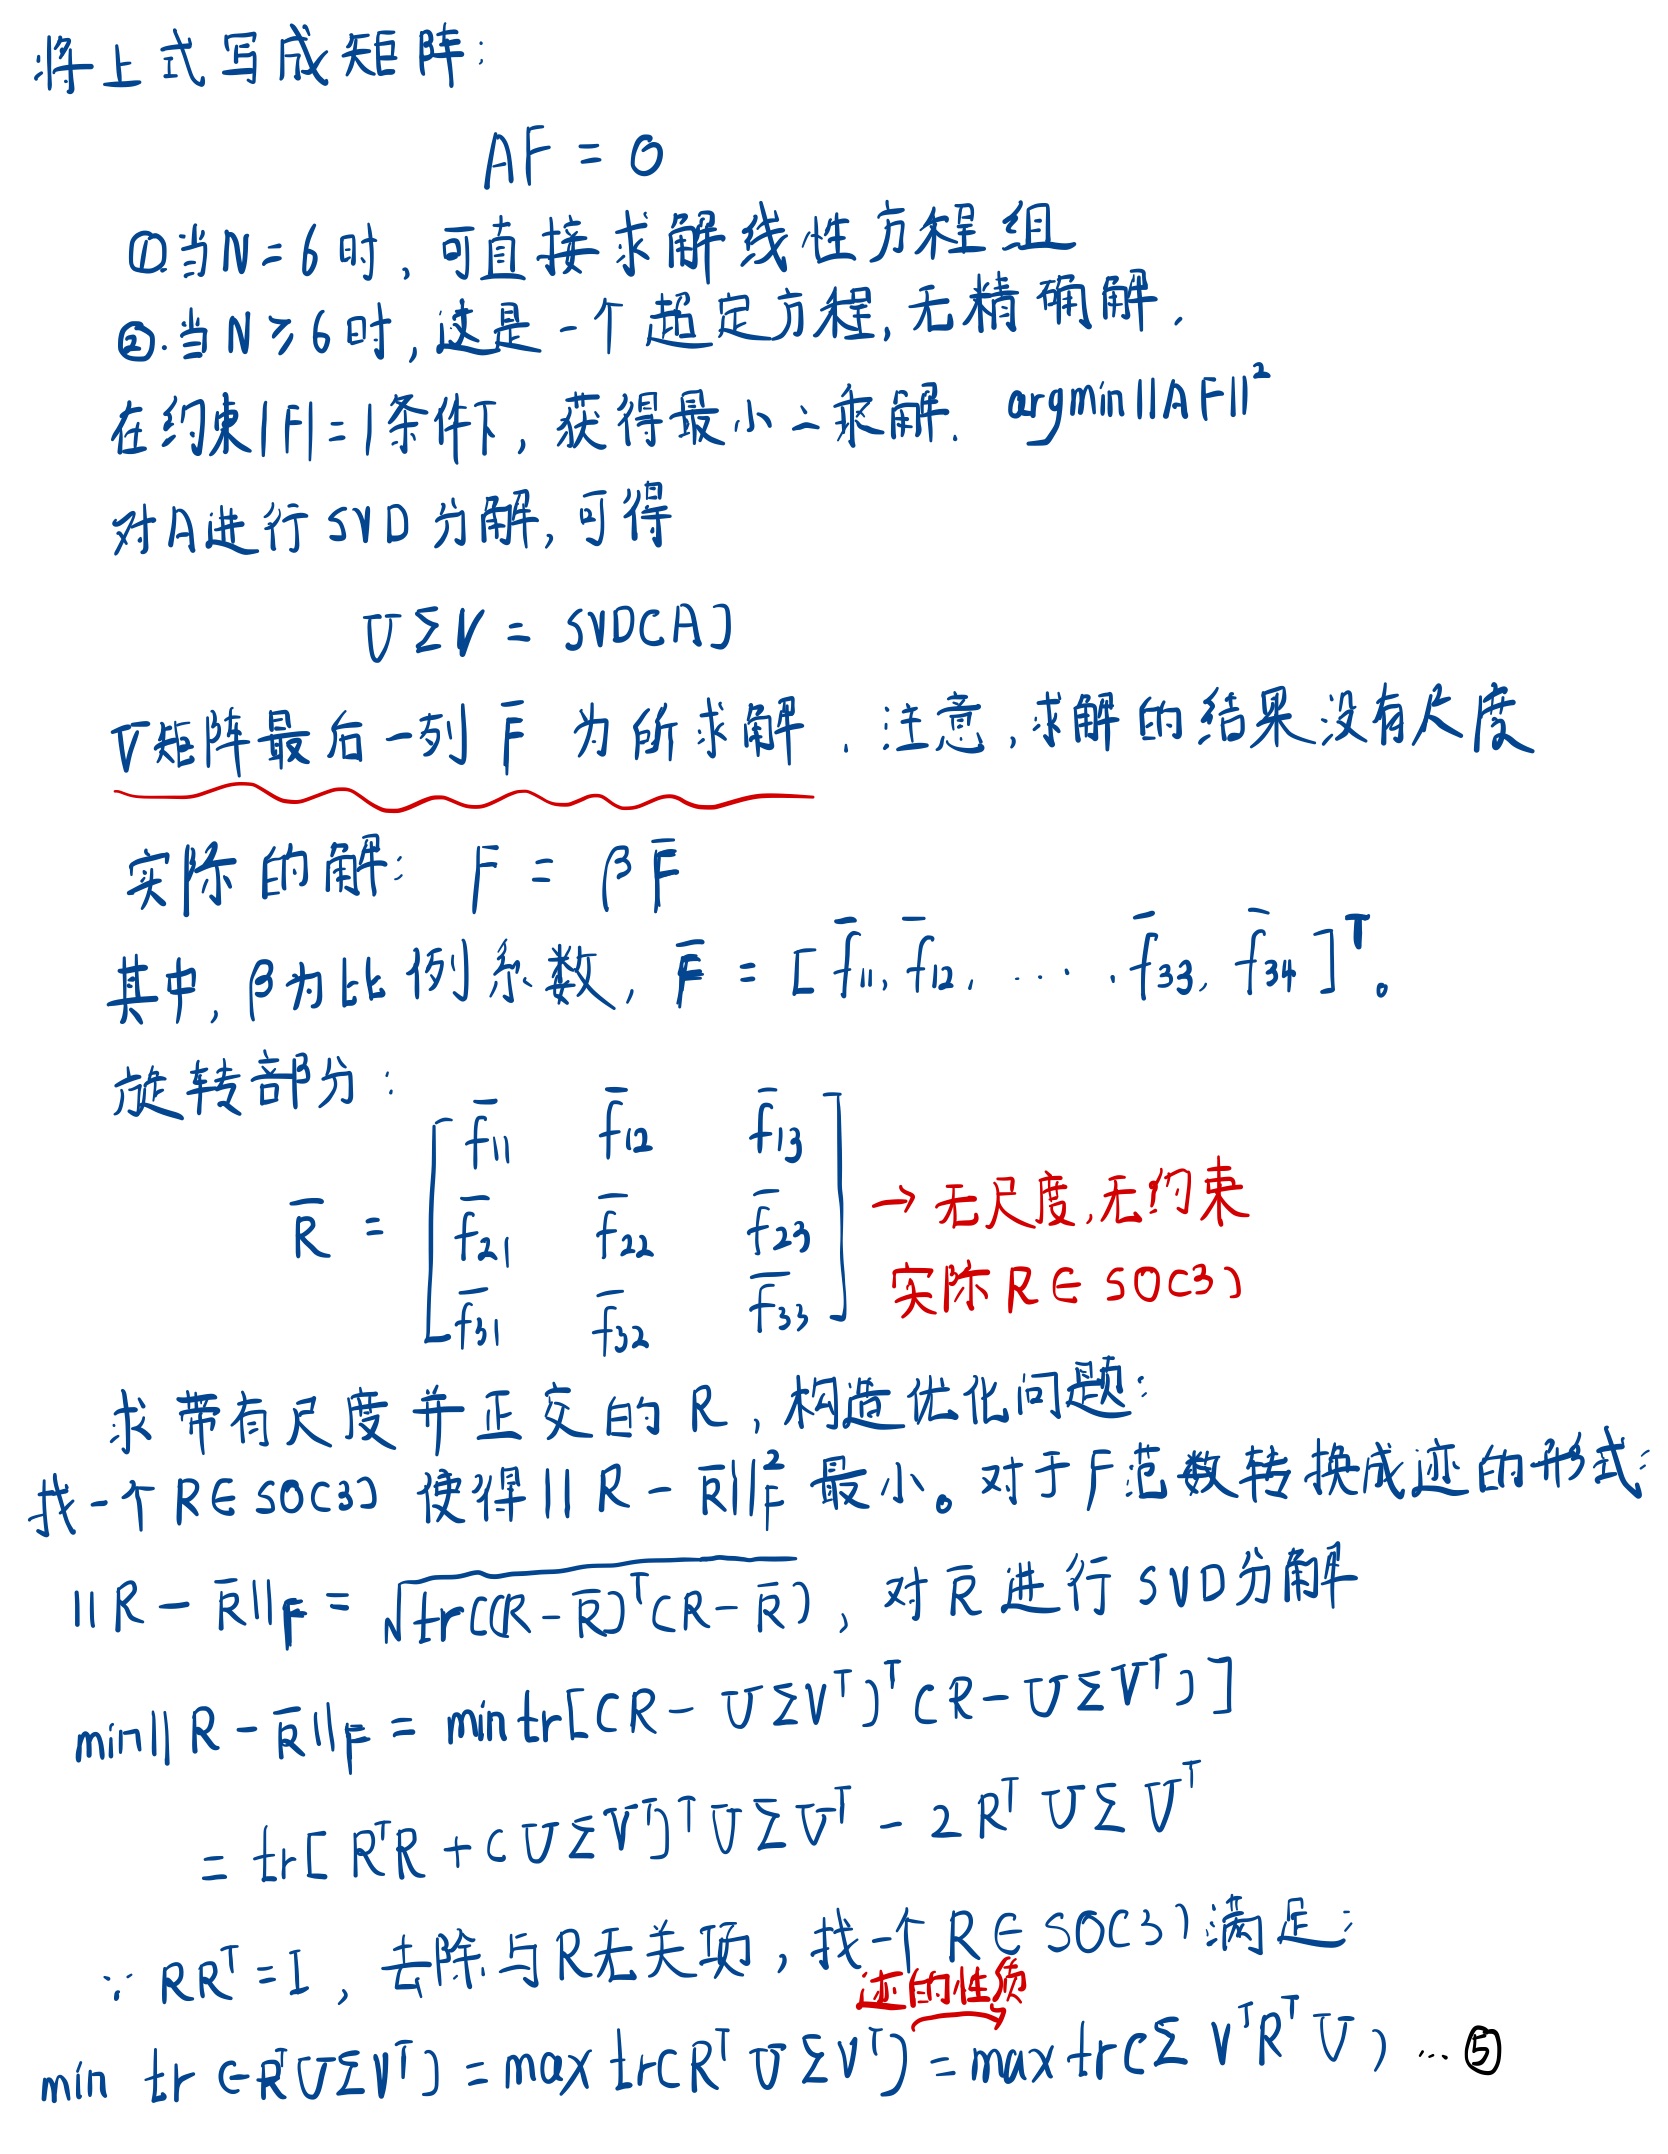 将上式写成矩阵:
AF = 0
①当N=6时,可直接求解线性方程组
②.当N≥6时,这是一个超定方程,无精确解.
在约束|F|=1条件下,获得最小二乘解. argmin||AF||²
对A进行SVD分解,可得
UΣV = SVD(A)
V矩阵最后一列 F̄ 为所求解.注意,求解的结果没有尺度
实际的解: F = βF̄
其中,β为比例系数, F̄ = [f̄11, f̄12, ..., f̄33, f̄34]ᵀ。
旋转部分:
f̄11 f̄12 f̄13
R̄ = [f̄21 f̄22 f̄23] → 无尺度,无约束
f̄31 f̄32 f̄33 实际R∈SO(3)
求带有尺度并正交的R,构造优化问题:
找一个R∈SO(3) 使得||R-R̄||²F 最小。对于F范数转换成迹的形式:
||R-R̄||F = √tr((R-R̄)ᵀ(R-R̄)), 对R̄进行SVD分解
min||R-R̄||F = min tr[(R-UΣVᵀ)ᵀ(R-UΣVᵀ)]
= tr[RᵀR + (UΣVᵀ)ᵀUΣVᵀ - 2RᵀUΣVᵀ
∵ RRᵀ=I, 去除与R无关项,找一个R∈SO(3)满足:
迹的性质
min tr(-RᵀUΣVᵀ) = max tr(RᵀUΣVᵀ) = max tr(ΣVᵀRᵀU) ...⑤